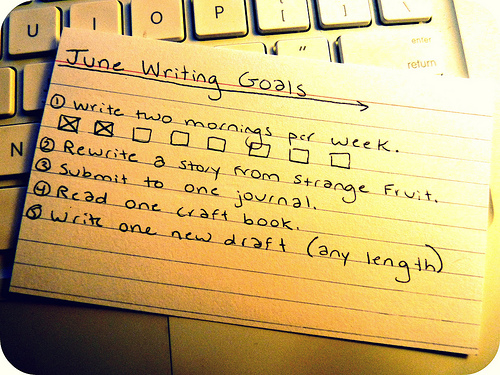 U I O P [ { ] } \
" enter
return
N
June Writing Goals
① Write two mornings per week.
② Rewrite a story from Strange Fruit.
③ Submit to one journal.
④ Read one craft book.
⑤ Write one new draft (any length)